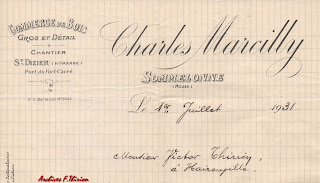 COMMERCE DE BOIS
GROS ET DÉTAIL
CHANTIER
ST DIZIER (HTE MARNE)
Port du Fort Carré
Charles Marcilly
SOMMELONNE
(MEUSE)
Le 1er Juillet 1931
Monsieur Victor Thirion,
à Haironville
Archives F.Thirion